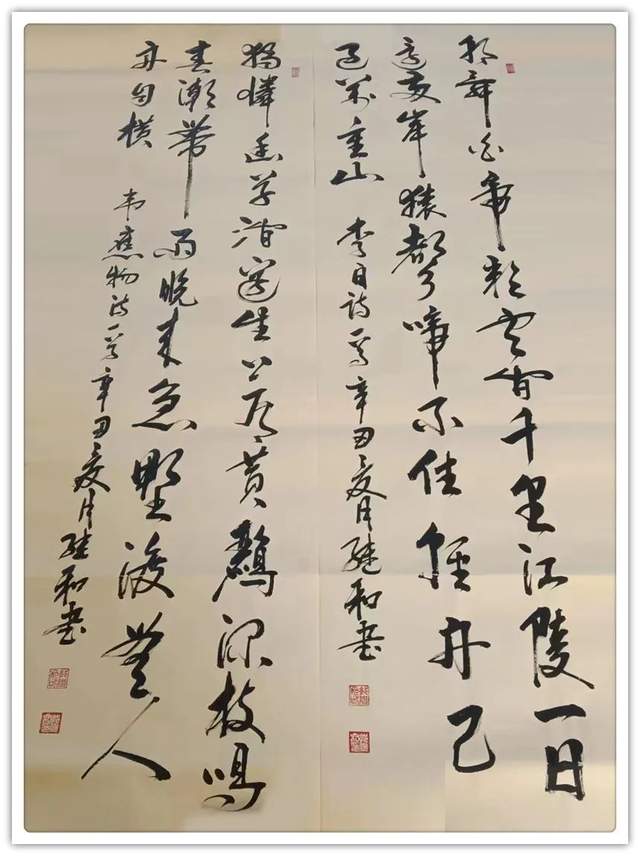 朝辞白帝彩雲间千里江陵一日
還两岸猿聲啼不住輕舟已
过萬重山 李白诗一首辛丑夏月继和书
獨憐幽草澗邊生上有黄鸝深树鳴
春潮带雨晚来急野渡無人
舟自横 韦應物诗一首辛丑夏月继和书